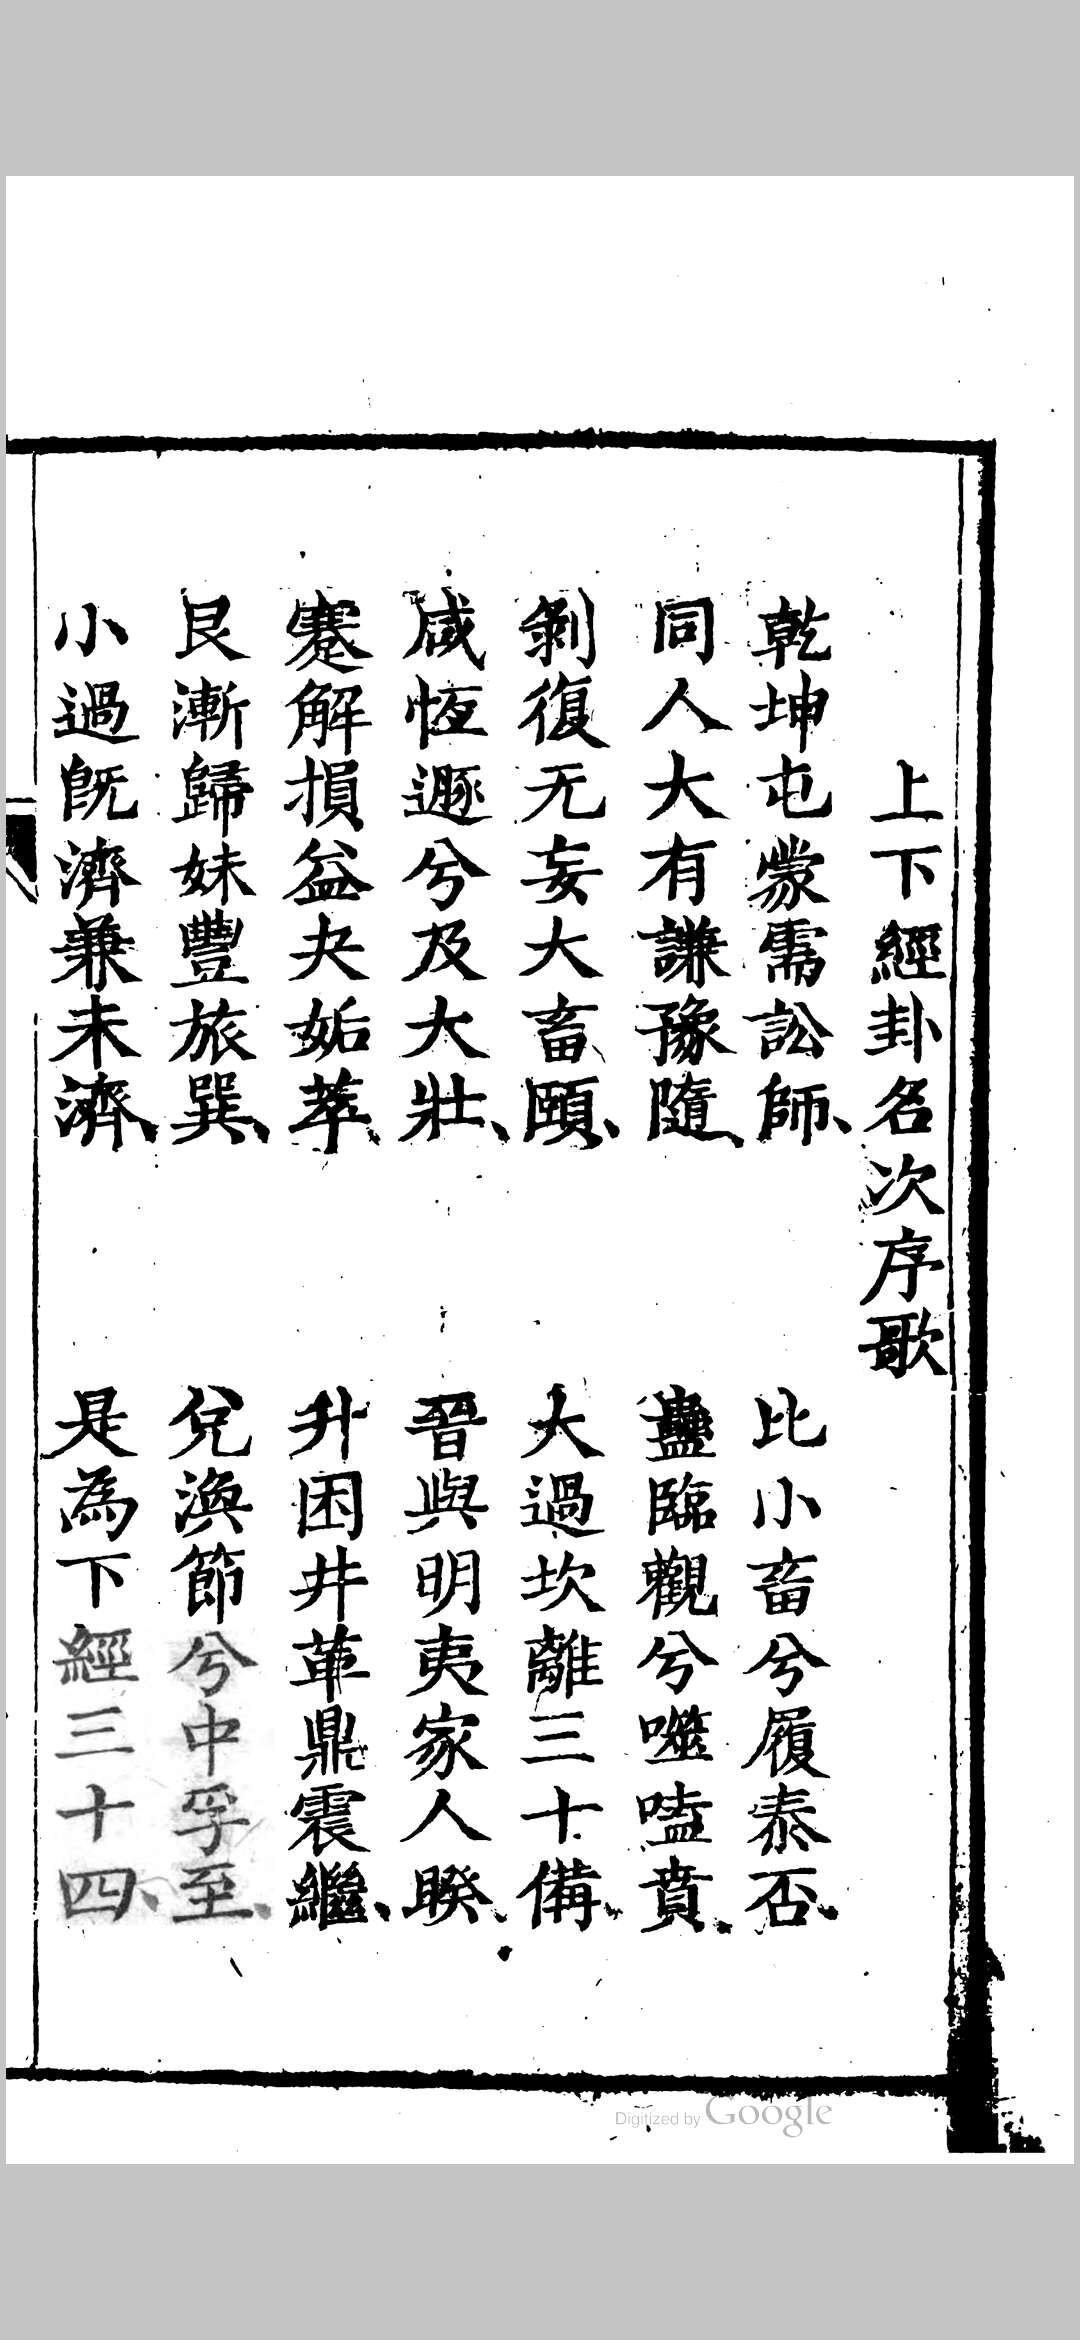 上下經卦名次序歌
乾坤屯蒙需訟師、比小畜兮履泰否、
同人大有謙豫隨、蠱臨觀兮噬嗑賁、
剝復无妄大畜頤、大過坎離三十備、
咸恆遯兮及大壯、晉與明夷家人睽、
蹇解損益夬姤萃、升困井革鼎震繼、
艮漸歸妹豐旅巽、兌渙節兮中孚至、
小過旣濟兼未濟、是為下經三十四、
Digitized by Google